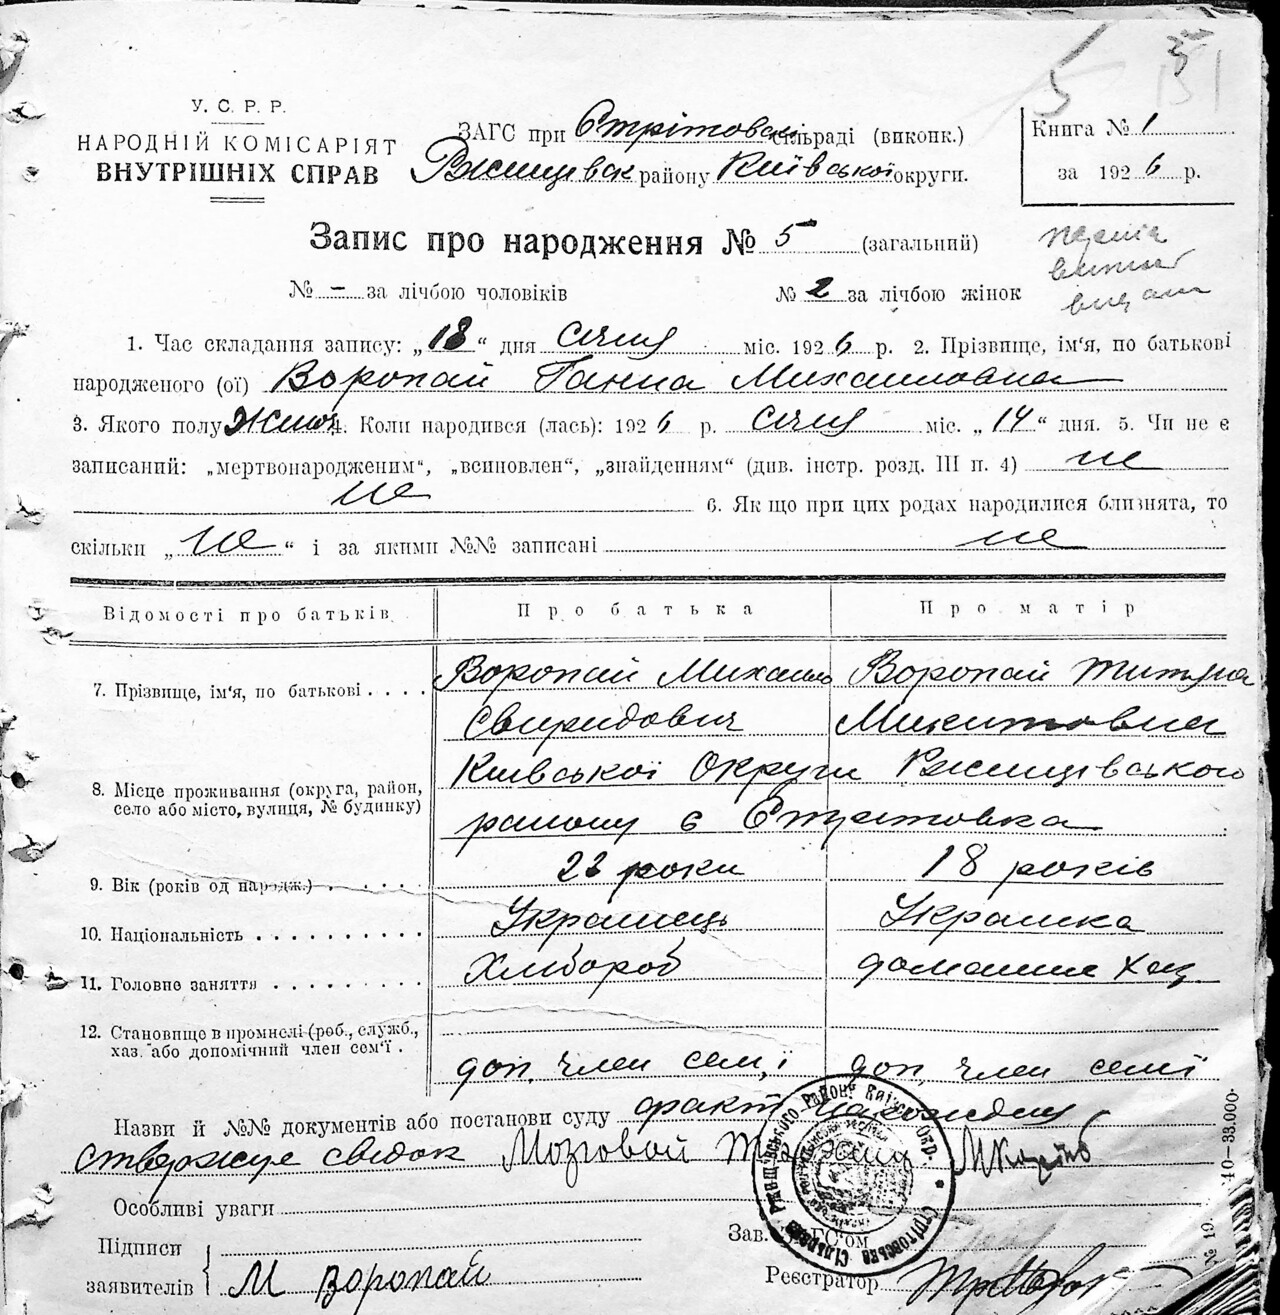 5
У. С. Р. Р.
НАРОДНІЙ КОМІСАРІЯТ
ВНУТРІШНІХ СПРАВ
ЗАГС при Стрітовськ сільраді (виконк.)
Ржищевск району Київської округи.
Книга № 1
за 1926 р.
Запис про народження № 5 (загальний)
№ - за лічбою чоловіків № 2 за лічбою жінок
1. Час складання запису: „18“ дня січня міс. 1926 р. 2. Прізвище, ім'я, по батькові
народженого (ої) Воропай Ганна Михаиловна
3. Якого полу Жіноч. 4. Коли народився (лась): 1926 р. січня міс. „14“ дня. 5. Чи не є
записаний: „мертвонародженим“, „всиновлен“, „знайденням“ (див. інстр. розд. III п. 4) не
не 6. Як що при цих родах народилися близнята, то
скільки „не“ і за якими №№ записані не
Відомості про батьків. Про батька Про матір
7. Прізвище, ім'я, по батькові . . . . Воропай Михаило Воропай Титяна
Свиридович Микитовна
8. Місце проживання (округа, район, село або місто, вулиця, № будинку) Київської Округи Ржищівського
району с Стрітовка
9. Вік (років од народж.) . . . . . 23 роки 18 років
10. Національність . . . . . . . . . . Українець Українка
11. Головне заняття . . . . . . . . . Хлібороб домашнє хаз
12. Становище в промислі (роб., служб., хаз. або допомічний член сем'ї . доп. член сем,ї доп. член семї
Назви й №№ документів або постанови суду факт
ствержує свідок Мозговой
Особливі уваги
Підписи
заявителів М Воропай
Зав. ЗАГС'ом
Реєстратор
№ 19. 10-33.000.